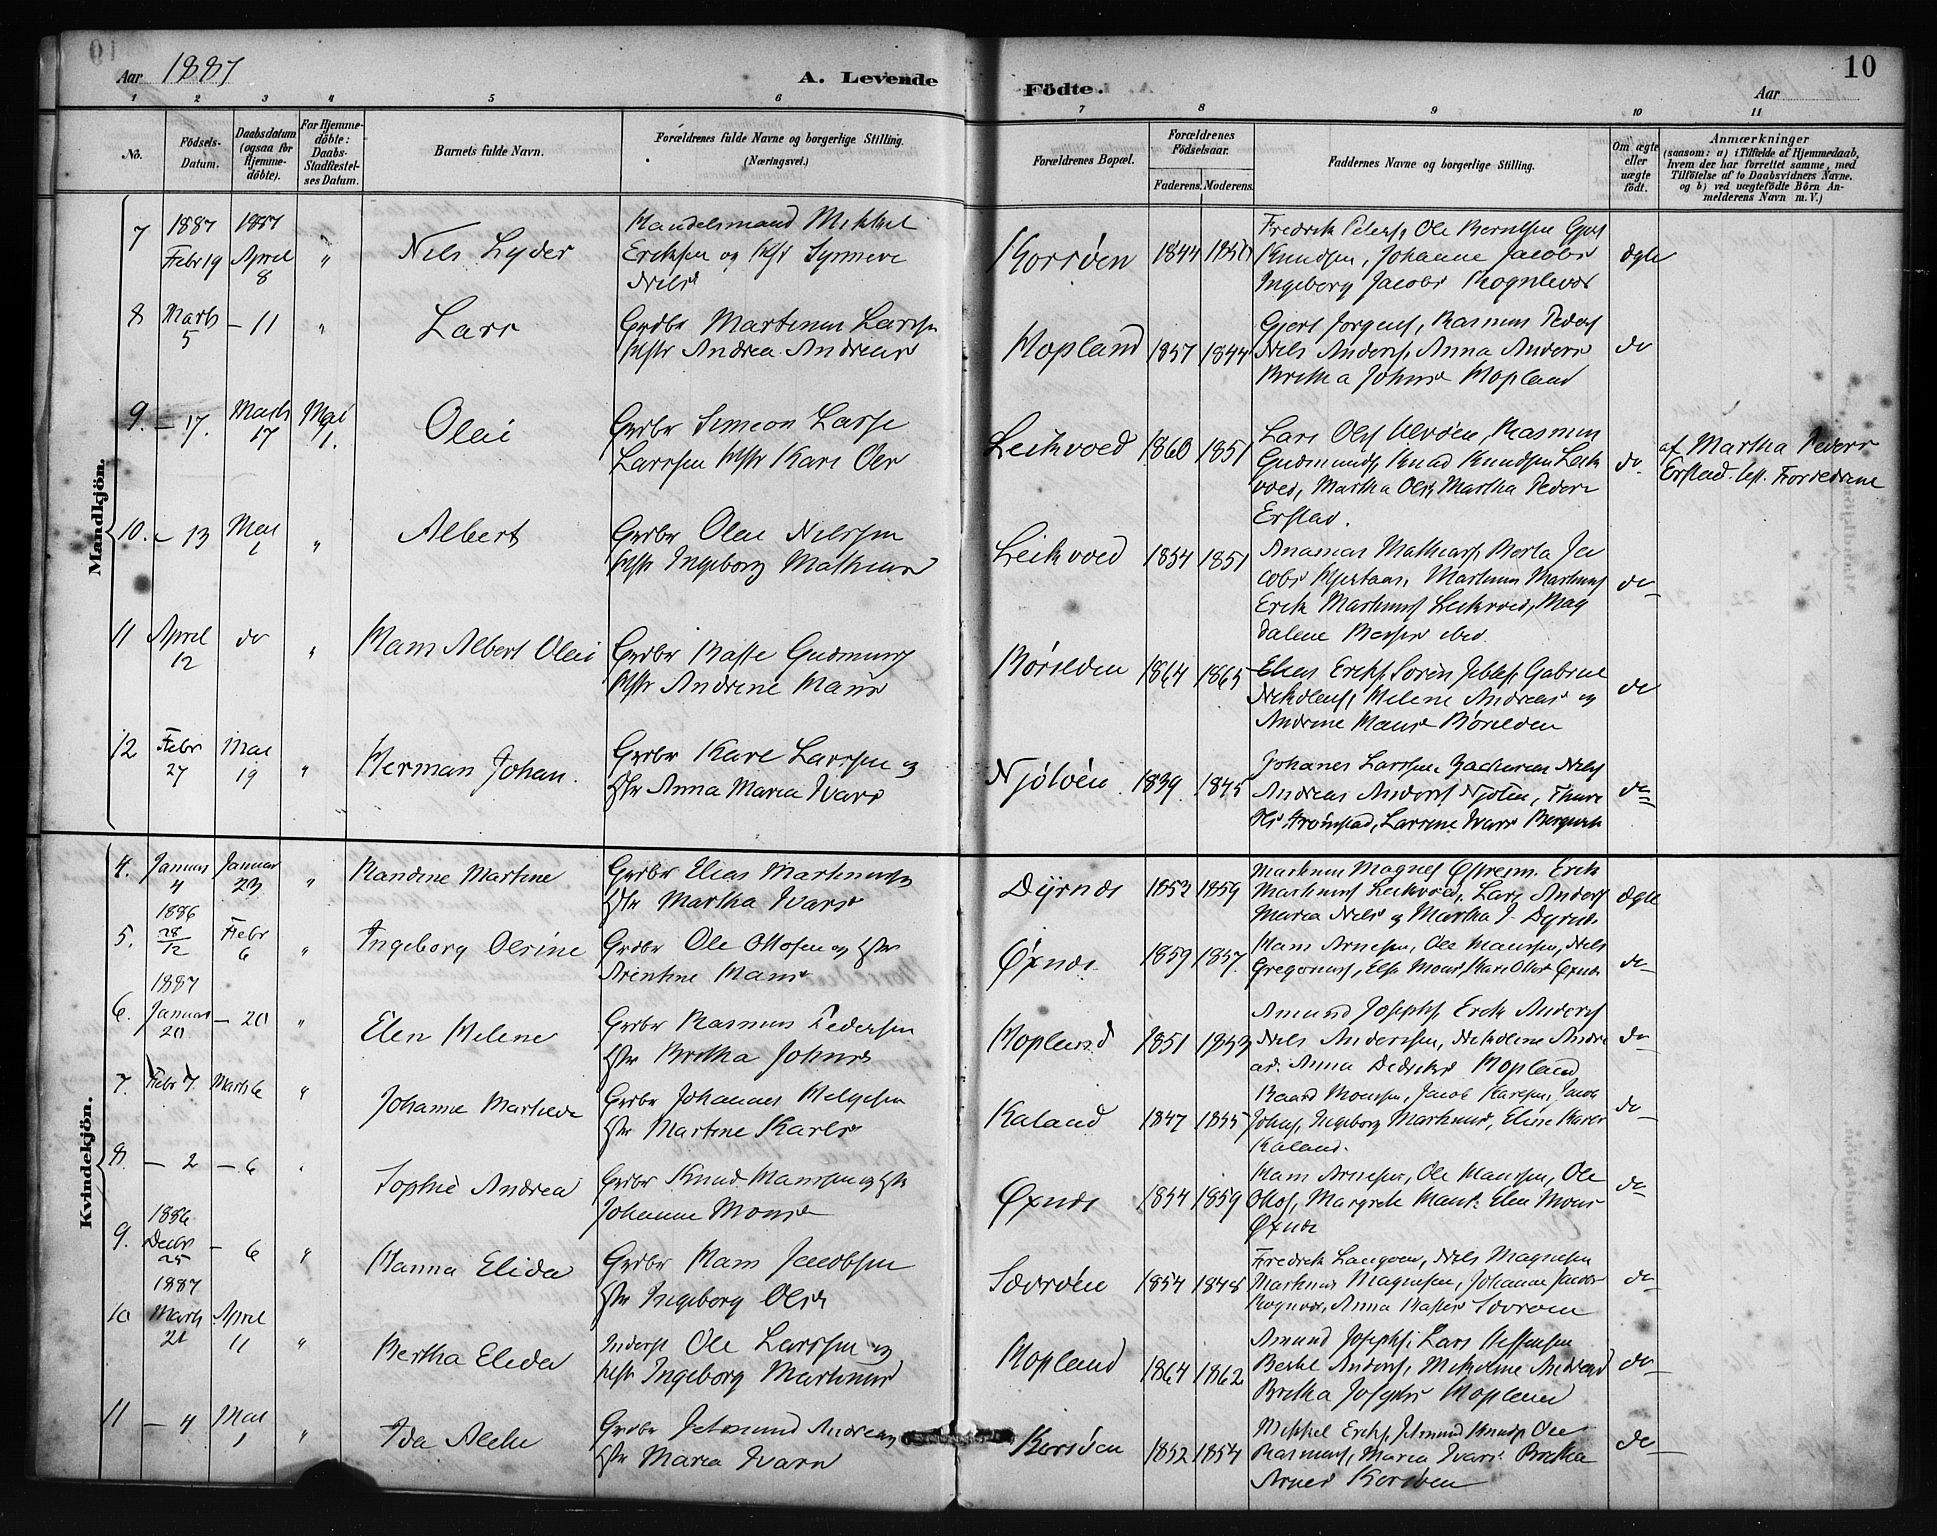 Aar 1887
A. Levende
Födte.
Aar
10
1
2
3
4
5
6
7
8
9
10
11
No.
Födsels-
Datum.
Daabsdatum
(ogsaa for
Hjemme-
döbte).
For Hjemme-
döbte:
Daabs-
Stadfæstel-
ses Datum.
Barnets fulde Navn.
Forældrenes fulde Navne og borgerlige Stilling.
(Næringsvei.)
Forældrenes Bopæl.
Forældrenes
Födselsaar.
Faderens.
Moderens.
Faddernes Navne og borgerlige Stilling.
Om ægte
eller
uægte
födt.
Anmærkninger
(saasom: a) i Tilfælde af Hjemmedaab,
hvem der har forrettet samme, med
Tilföielse af to Daabsvidners Navne.
og b) ved uægtefödte Börn An-
melderens Navn m. V.)
Mandkjön.
7
1887
Febr 19
1887
April
8
"
Nils Lyder
Handelsmand Mikkel
Eriksen og
Nilsd
Korsöen
1844
Fredrik Peters, Ole Berntsen Gjert
Knudsen, Johanne Jacobs
Ingeborg Jacobs
ægte
8
Marts
5
– 11
"
Lars
Grdbr Martinus Larssen
Hstr Andrea Andreasd
Hopland
1857
1844
Gjert Jorgens, Rasmus Peders
Nils Anders, Anna Anders
Bertha Johnsd Hopland
do
9.
– 17.
Marts
17
Mai
1.
Olai
Grdbr Simeon Lasse
Larssen Hstr Kari Olsd
Leikvoed
1860
1851
Lars Ols Ulvöen, Rasmus
Gudmunds, Knud Knudsen Leik
voed, Martha Ols, Martha Peders
Erstad.
do
af Martha Peders
Erstad. Forældrene
10.
– 13
Mai
1
"
Albert
Grdbr Olai Nilssen
Hstr Ingeborg Mathiasd
Leikvoed
1854
1851
Ananias Mathias, Berta Ja
cobs Martinus Martinus
Erik Martinus Leikvoed, Mag
dalene ibid.
do
11
April
12
do
"
Hans Albert Olai
Grdbr Rasse Gudmunds
Hstr Andrine Hansd
Börilden
1864
1865
Elias Eriks, Sören Gabriel
Nikolais, Helene Andreasd og
Andrine Hansd Börilden
do
12
Febr
27
Mai
19
"
Herman Johan.
Grdbr Karl Larssen og
Hstr Anna Maria Ivarsd
Njötöen.
1839
1845
Johanes Larssen, Zacharias Nils
Andreas Anders Njöten, Thure
Ols Larsine Ivars
do
Kvindekjön.
4.
Januar
4
Januar
23
"
Randine Martine
Grdbr Elias Martinus og
Hstr Martha Ivarsd
Dyrnes
1853
1859
Martinus Magnes Erik
Martinus Leikvoed, Lars Anders
Maria Nilsd og Martha I. Dyrnes
ægte
5.
1886
28/12
Febr
6
"
Ingeborg Olsine
Grdbr Ole Ottosen og Hstr
Arentine Hansd
Öxnes
1859
1857
Hans Arnesen, Ole Hanssen, Nils
Gregorius, Elsa Mons, Kari Olsd Öxnes
do
6.
1887
Januar
20
– 20
"
Elen Helene
Grdbr Rasmus Pedersen
Hstr Bertha Johnsd
Hopland
1851
1853
Amund Josephs, Erik Anders
Nils Anderssen, Nikoline Andre
as. Anna Hopland
do
7.
Febr 7.
Marts 6
"
Johanne
Grdbr Johannes Helgesen
Hstr Martine Karls
Kaland
1847
1855
Baard Monssen, Jacob Karlsen, Jacob
Johns, Ingeborg Martinus, Eline Karls
Kaland.
do
8.
– 2
– 6
"
Sophie Andrea
Grdbr Knud Hanssen og Hstr
Johanne Monsd
Öxnes
1854
1859
Hans Arnesen, Ole Hanssen, Ole
Ottos, Margrete Hans: Elen Mons
Öxnes
do
9.
1886
Decbr
25
– 6
"
Hanna Elida
Grdbr Hans Jacobsen
Hstr Ingeborg Olsd
Sævröen
1854
1848
Fredrik Langöen, Nils Magnesen
Martinus Magnesen, Johanne Jacobs
Anna Sævröen
do
10
1887
Marts
21
April
11
"
Bertha Elida
Inderst Ole Larssen og
Hstr Ingeborg Martinusd
Hopland
1864
1862
Amund Josephs, Lars
Bertel Anders, Nikoline Andreasd
Bertha Josephs Hopland
do
11
– 4
Mai
1
"
Ida
Grdbr Andreas og
Hstr Maria Ivarsd
Korsöen
1852
1854
Mikkel Eriks, Knuds, Ole
Rasmus, Maria Ivars: Bertha
Arnes Korsöen
do